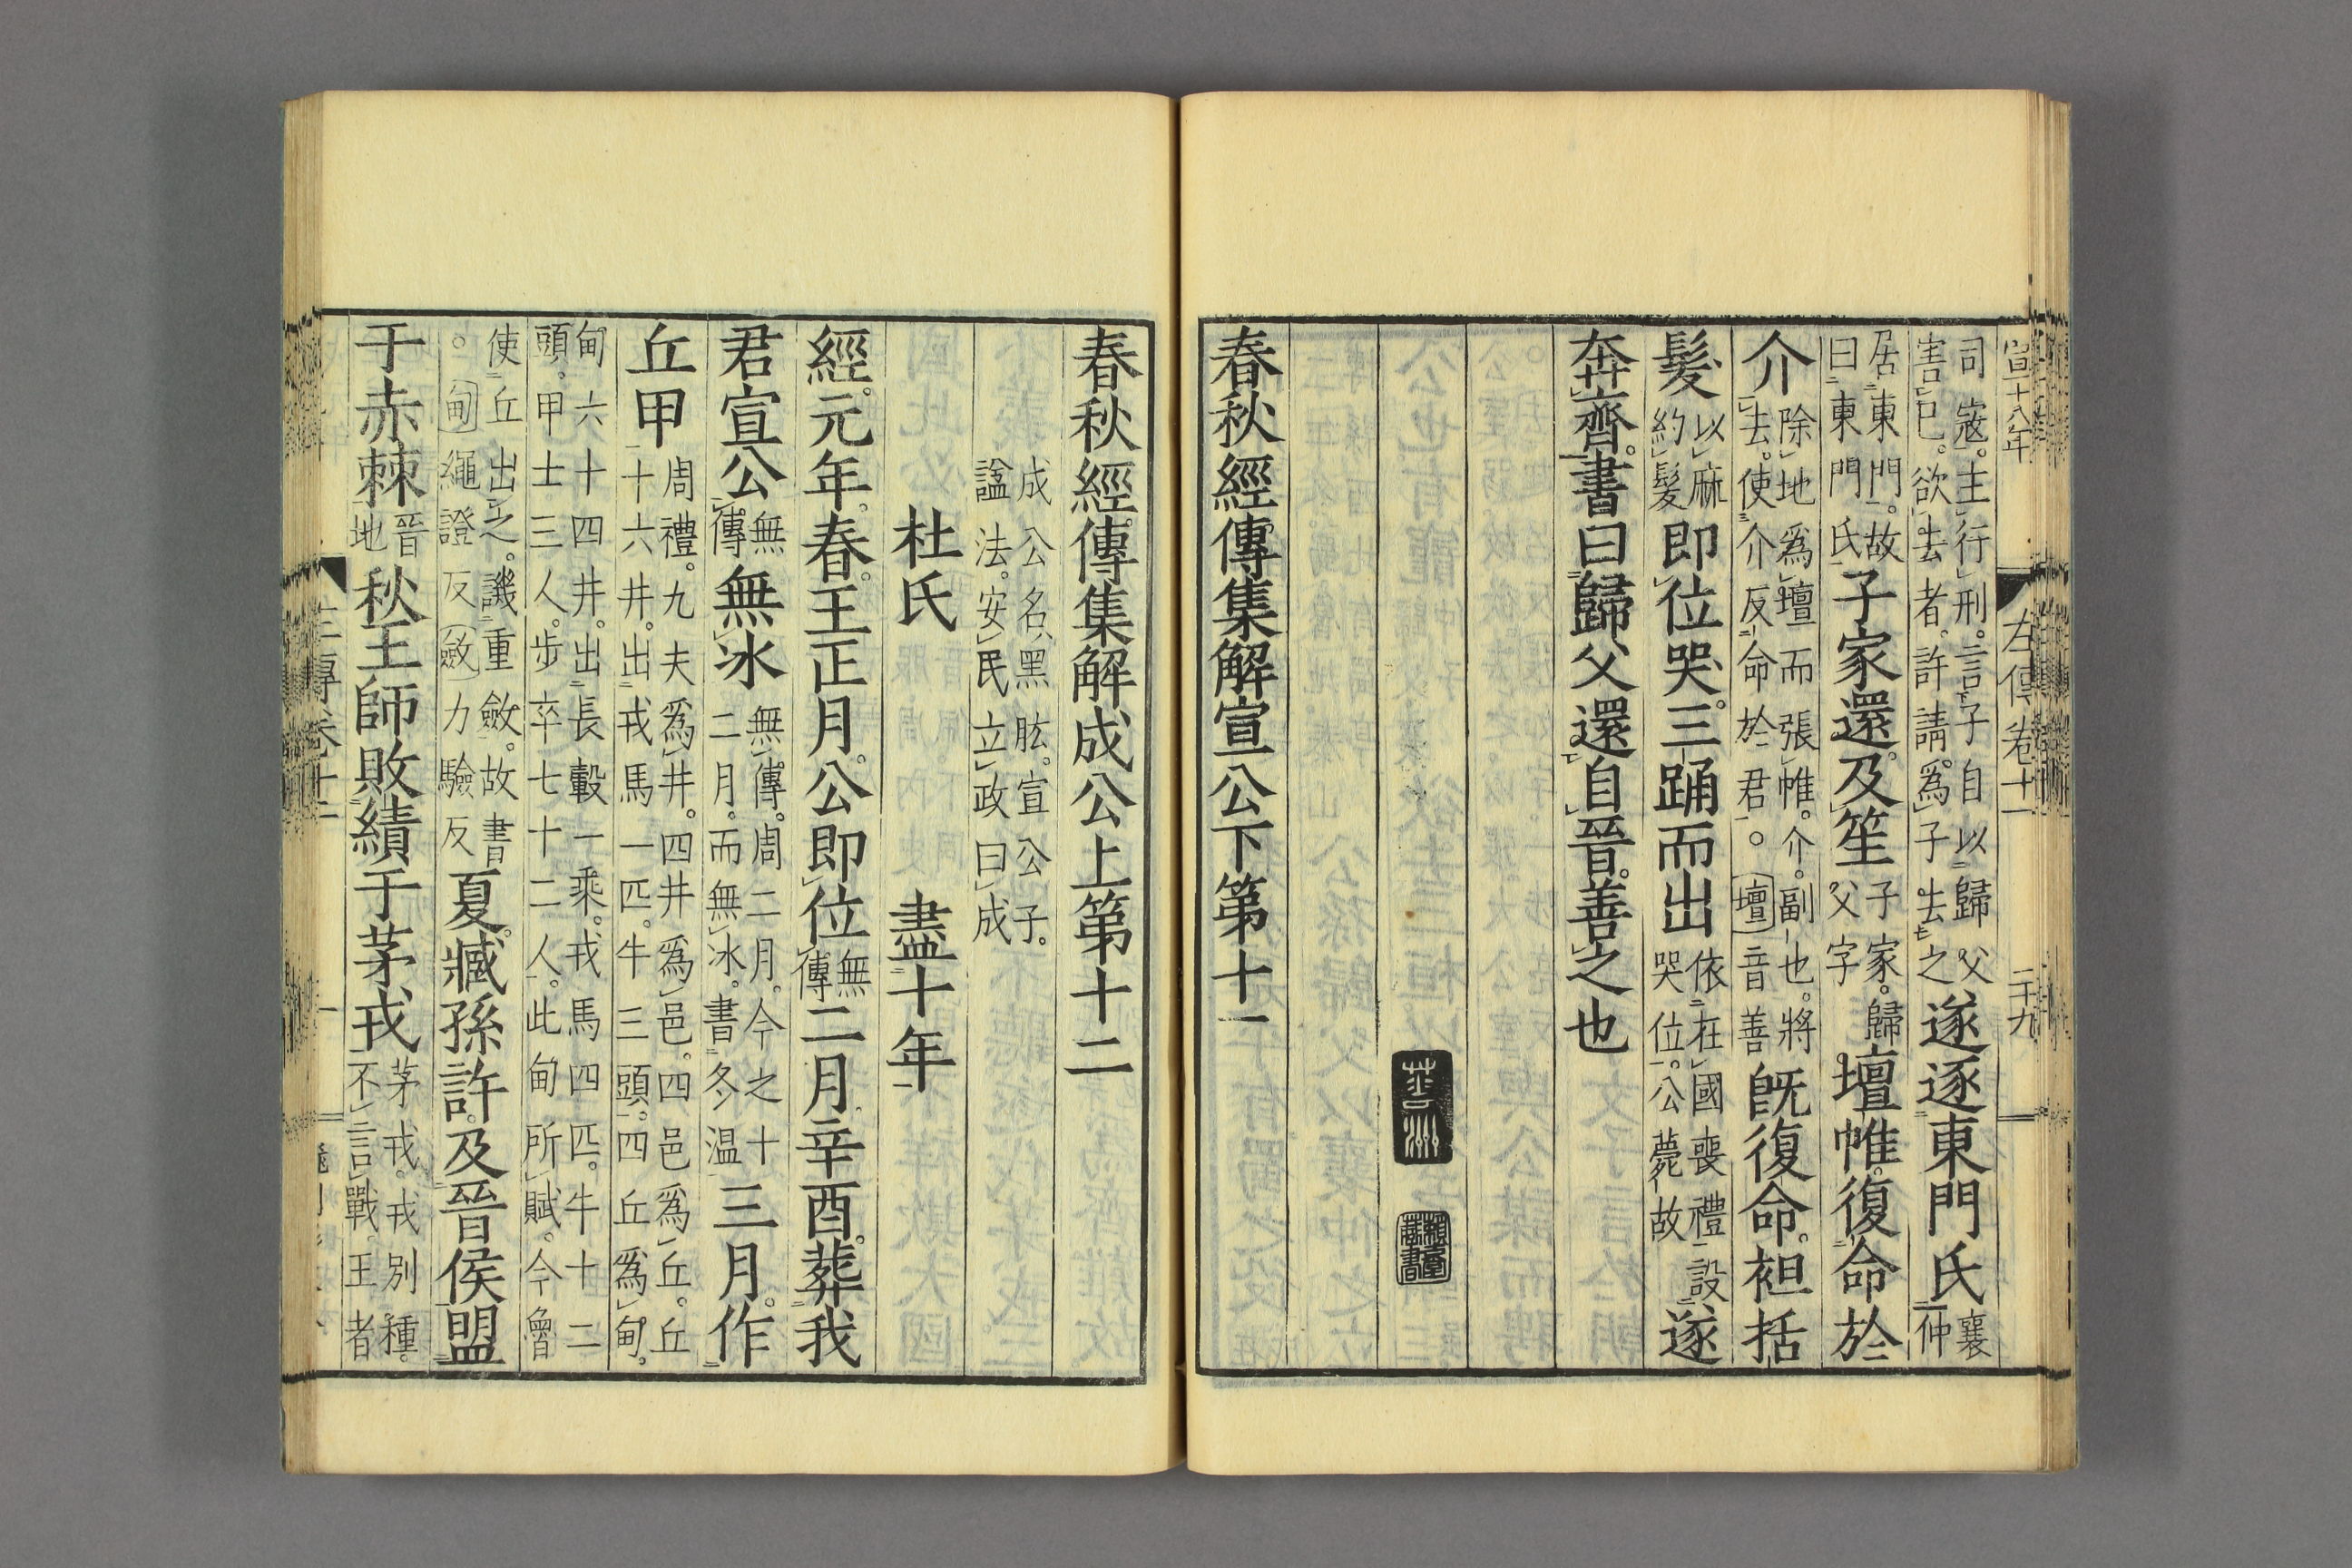 宣十八年 左傳卷十一 二十九
司寇。主行刑。言子自以歸父害已。欲去者。許請。爲子去之遂逐東門氏襄仲
居東門。故曰東門氏子家還。及笙子家。歸父字壇帷。復命於
介除地爲壇而張帷。介。副也。將去。使介反命於君。○壇音善旣復命。袒括
髮以麻約髮即位哭。三踊而出依在國喪禮設哭位。公薨故遂
奔齊。書曰歸父還自晉。善之也
春秋經傳集解宣公下第十一
春秋經傳集解成公上第十二
成公名黑肱。宣公子。謚法。安民立政曰成
杜氏 盡十年
經。元年。春。王正月。公即位無傳二月辛酉。葬我
君宣公。無傳無冰無傳。周二月。今之十二月。而無冰。書冬温三月。作
丘甲周禮。九夫爲井。四井爲邑。四邑爲丘。丘十六井。出戎馬一匹。牛三頭。四丘爲甸。
甸六十四井。出長轂一乘。戎馬四匹。牛十二頭。甲士三人。步卒七十二人。此甸所賦。今魯
使丘出之。譏重斂。故書○甸繩證反斂力驗反夏。臧孫許。及晉侯盟
于赤棘晉地秋王師敗績于茅戎茅戎。戎別種。不言戰。王者